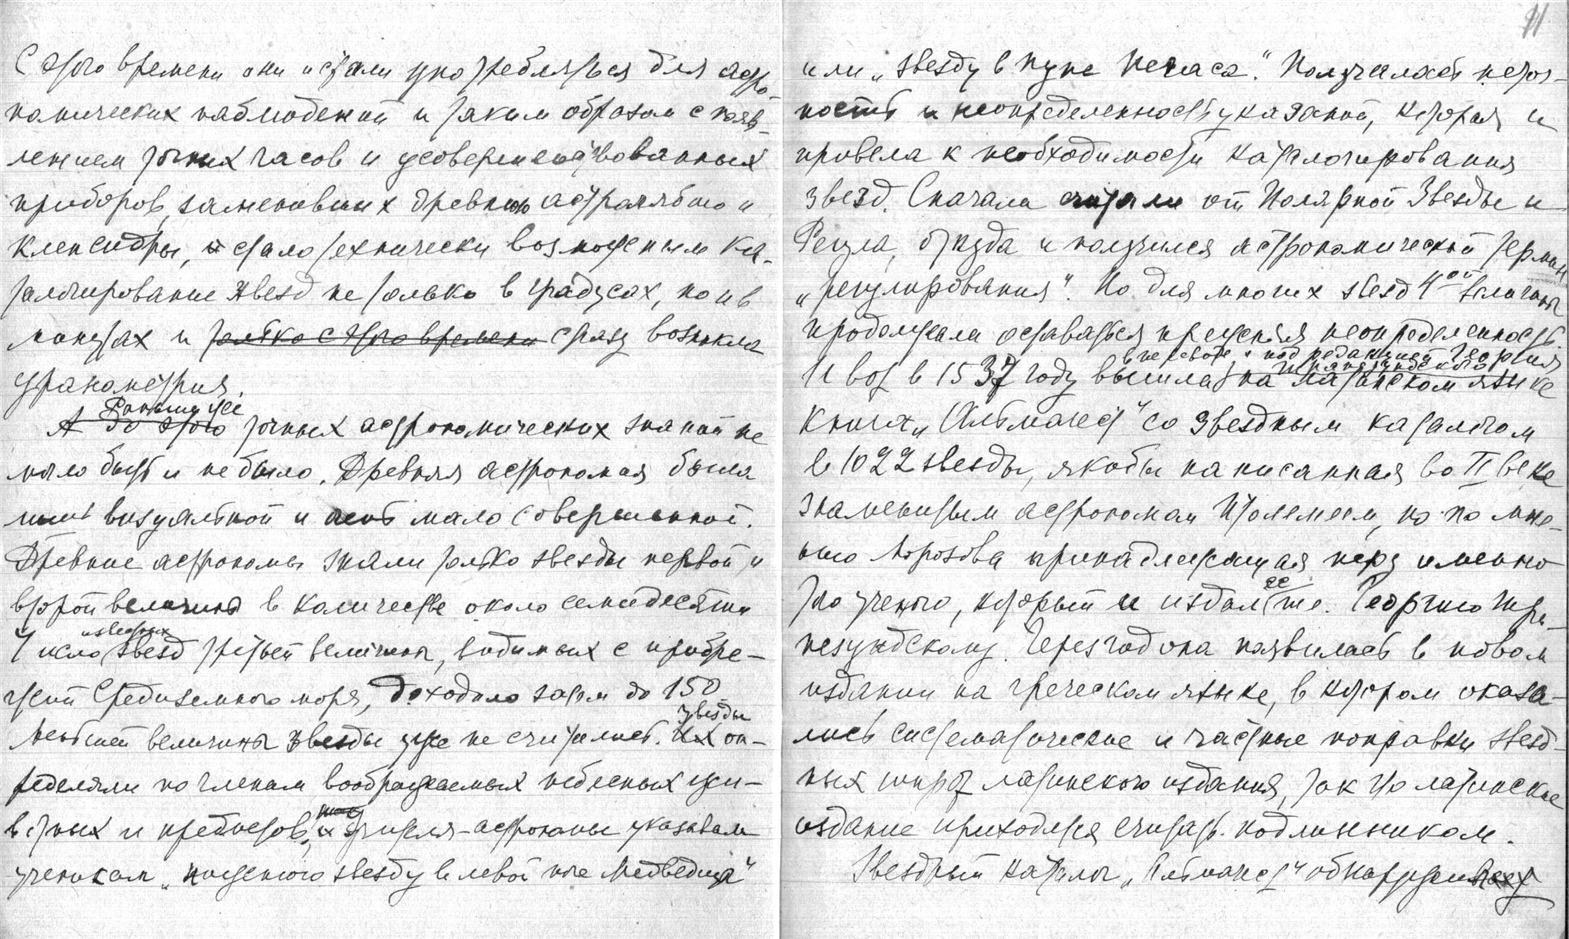 С этого времени они и стали употребляться для астро-
номических наблюдений и таким образом с появ-
лением точных часов и усовершенствованных
приборов, заменивших древнюю астролябию и
клепсидры, и стало технически возможным ка-
талогирование звезд не только в градусах, но и в
минутах и только с этого времени сразу возникла
уранометрия.
Раньше же
А до этого точных астрономических знаний не
могло быть и не было. Древняя астрономия была
лишь визуальной и мало совершенной.
Древние астрономы знали только звезды первой и
второй величины в количестве около семидесяти
Число звезд третьей величины, видимых с побре-
жий Средиземного моря, доходило затем до 150
звезды
Меньшей величины звезды уже не считались. Их оп-
ределяли по членам воображаемых небесных жи-
вотных и предметов, и учителя-астрономы указывали
ученикам „ звезду в левой ноге Медведицы"
11
или „звезду в пупе Пегаса". Получалась неточ-
ность и неопределенность указаний, которая и
привела к необходимости каталогирования
звезд. Сначала считали от Полярной Звезды и
Регула, откуда и получился астрономический термин
„регулирования". Но для многих звезд 4ой величины
продолжала оставаться прежняя неопределенность.
в переводе и под редакцией Георгия
Трапезундского
И вот в 1537 году вышла на латинском языке
книга „Альмагест" со звездным каталогом
в 1022 звезды, якобы написанная во II веке
знаменитым астрономом Птолемеем, но по мне-
нию Морозова принадлежащая перу именно
ее
того ученого, который и издал же. Георгию Тра-
пезундскому. Через год она появилась в новом
издании на греческом языке, в котором оказа-
лись систематические и частные поправки звезд-
ных широт латинского издания, так что латинское
издание приходится считать подлинником.
Звездный каталог „Альмагест" обнаружил